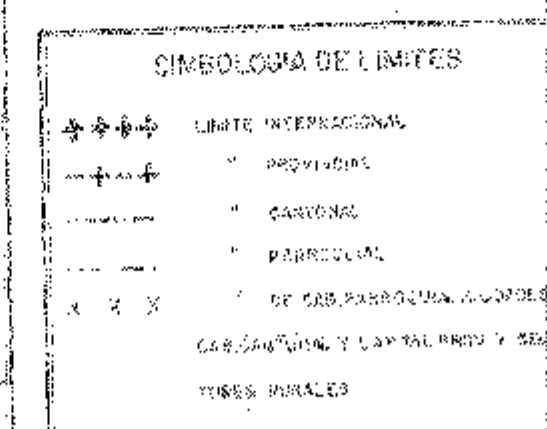 SIMBOLOGIA DE LIMITES
LIMITE INTERNACIONAL
" PROVINCIAL
" CANTONAL
" PARROQUIAL
" DE CAB. PARROQUIAL
CAB. CANTONAL Y CAPITAL PROV Y SEC
TORES RURALES